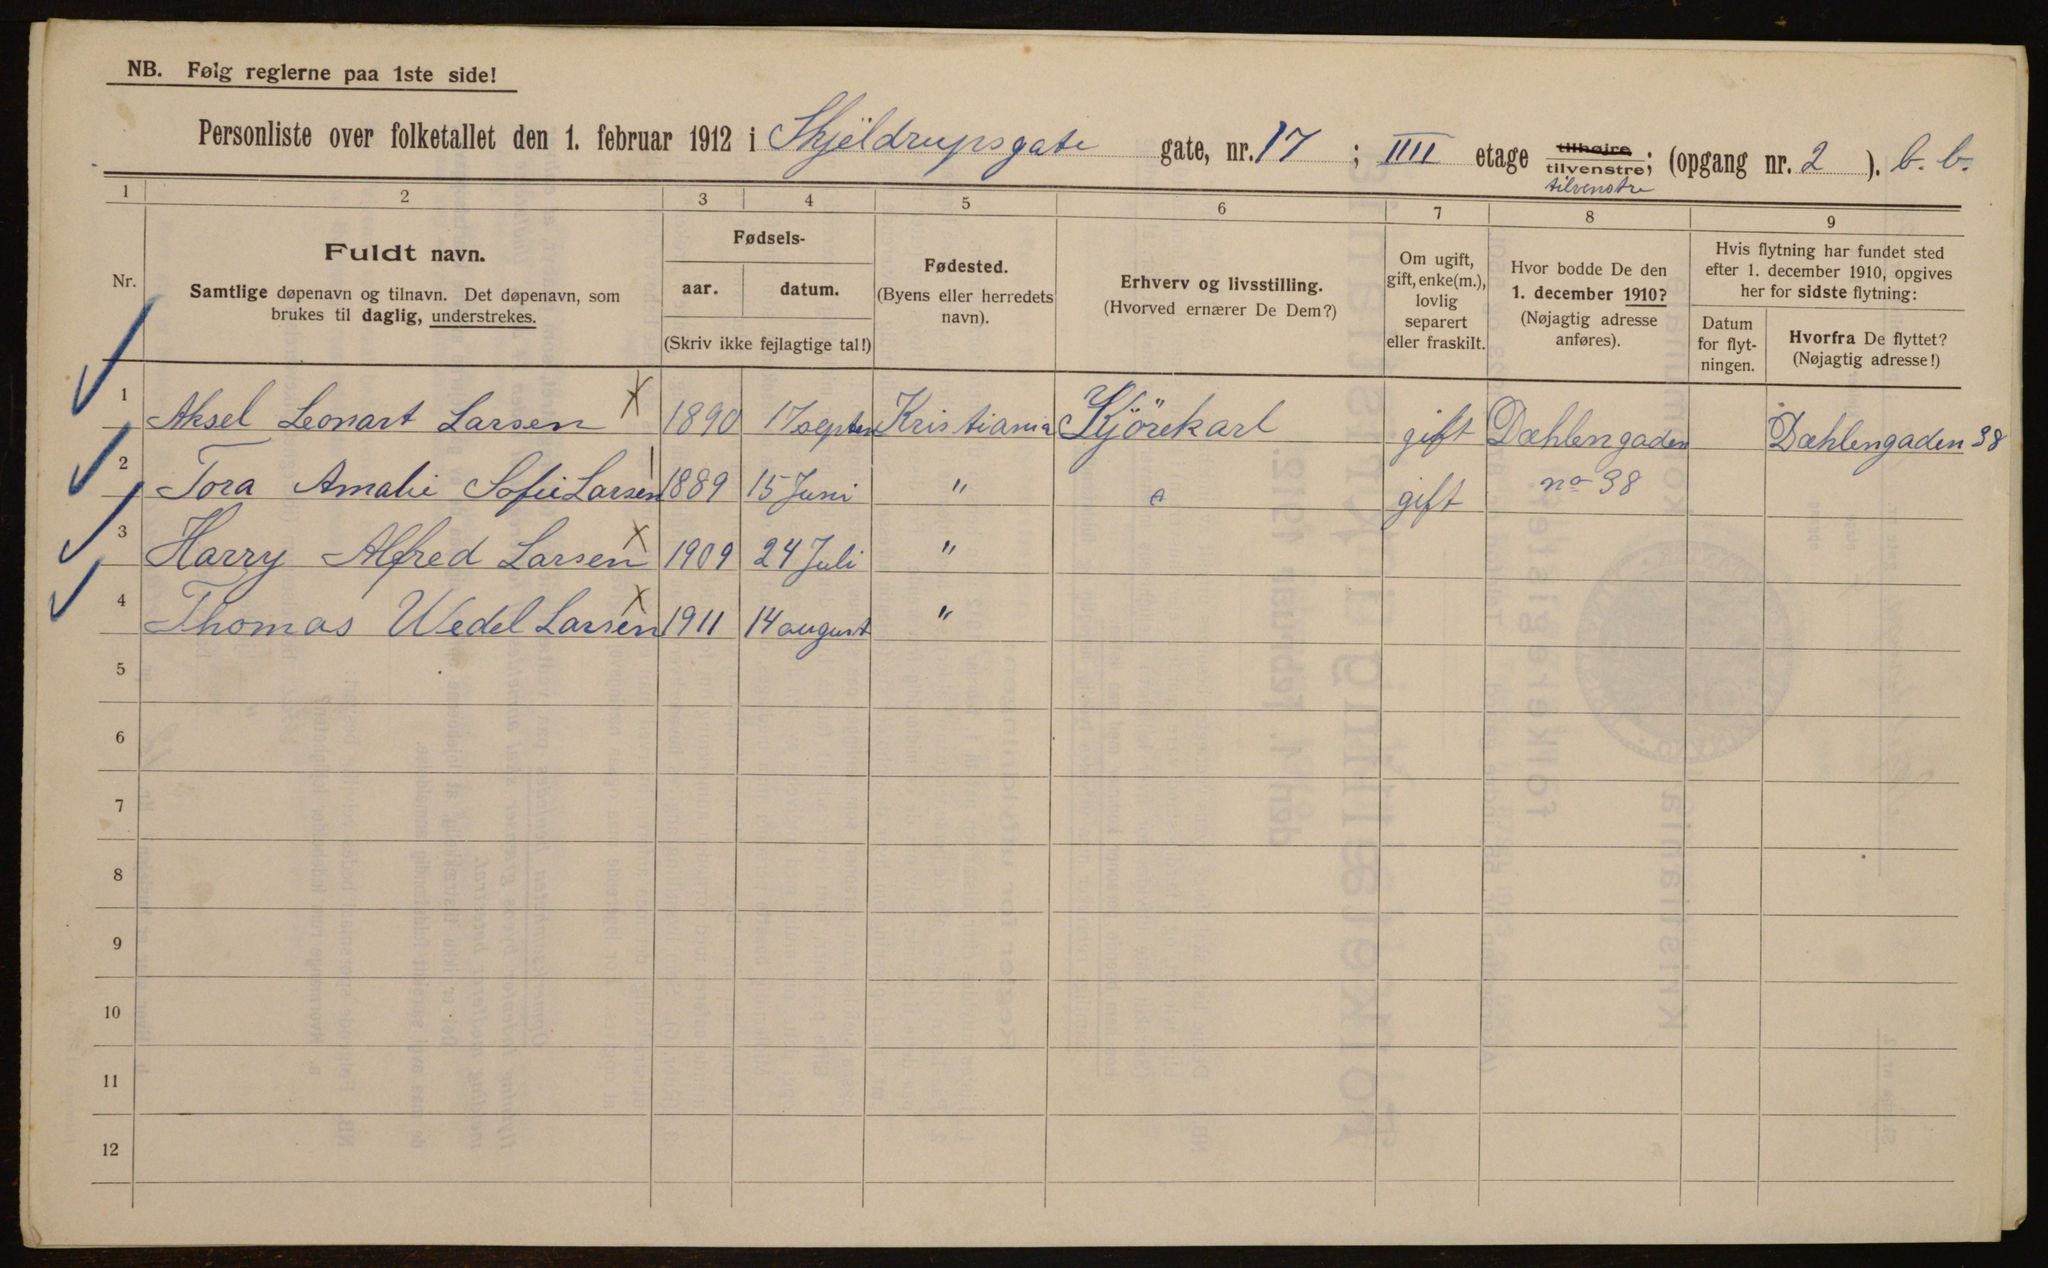 NB. Følg reglerne paa 1ste side!
Personliste over folketallet den 1. februar 1912 i Skjéldrupsgate gate, nr. 17 ; IIII etage tilhøire tilvenstre; (opgang nr. 2 ). b. b.
tilvenstre
1 2 3 4 5 6 7 8 9
Nr.
Fuldt navn.
Samtlige døpenavn og tilnavn. Det døpenavn, som
brukes til daglig, understrekes.
Fødsels-
aar. datum.
(Skriv ikke fejlagtige tal!)
Fødested.
(Byens eller herredets
navn).
Erhverv og livsstilling.
(Hvorved ernærer De Dem?)
Om ugift,
gift, enke(m.),
lovlig
separert
eller fraskilt.
Hvor bodde De den
1. december 1910?
(Nøjagtig adresse
anføres).
Hvis flytning har fundet sted
efter 1. december 1910, opgives
her for sidste flytning:
Datum
for flyt-
ningen.
Hvorfra De flyttet?
(Nøjagtig adresse!)
1 Aksel Leonart Larsen 1890 17 septem Kristiania Kjörekarl gift Dæhlengaden Dæhlengaden 38
2 Tora Amalie Sofie Larsen 1889 15 Juni " gift no 38
3 Harry Alfred Larsen 1909 24 Juli "
4 Thomas Wedel Larsen 1911 14 august "
5
6
7
8
9
10
11
12